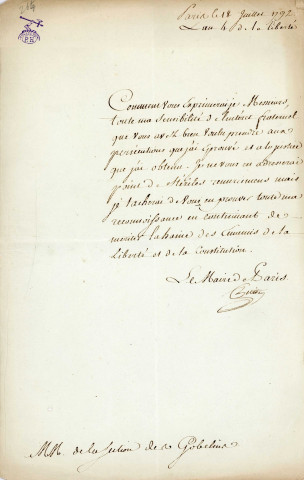 Paris le 18 Juillet 1792
L'an 4 de la liberté
Comment vous exprimerai-je Messieurs,
toute ma sensibilité de l'interet fraternel
que vous avez bien voulu prendre aux
persécutions que j'ai éprouvé et a la justice
que j'ai obtenu. Je ne vous en adresserai
point de stériles remerciemens mais
je tacherai de vous en prouver toute ma
reconnoissance en continuant de
mériter la haine des Ennemis de la
Liberté et de la Constitution.
Le Maire de Paris
MM. de la section des Gobelins